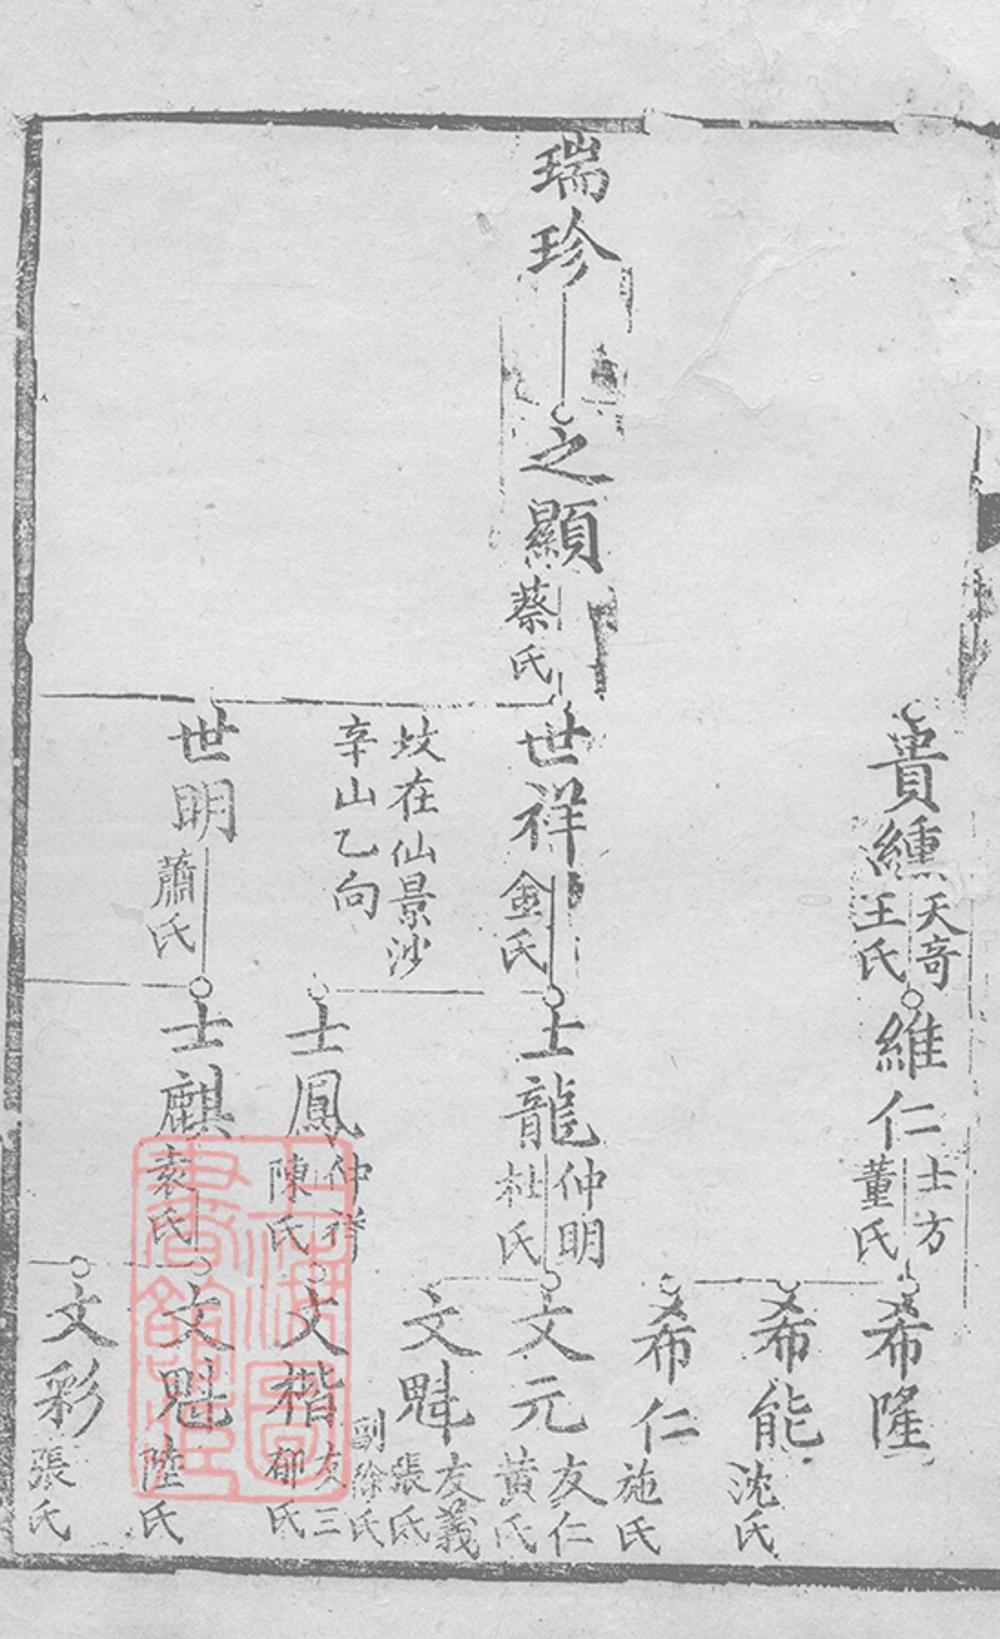 貴纁
天奇
王氏
維仁
士方
董氏
希隆
希能
沈氏
希仁
施氏
瑞珍
之顯
蔡氏
世祥
金氏
坟在仙景沙
辛山乙向
士龍
仲明
杜氏
文元
友仁
黄氏
文魁
友義
張氏
副徐氏
士鳳
仲祥
陳氏
文楷
友三
郁氏
世明
蕭氏
士麒
袁氏
文魁
陸氏
文彩
張氏
上海圖
書館藏